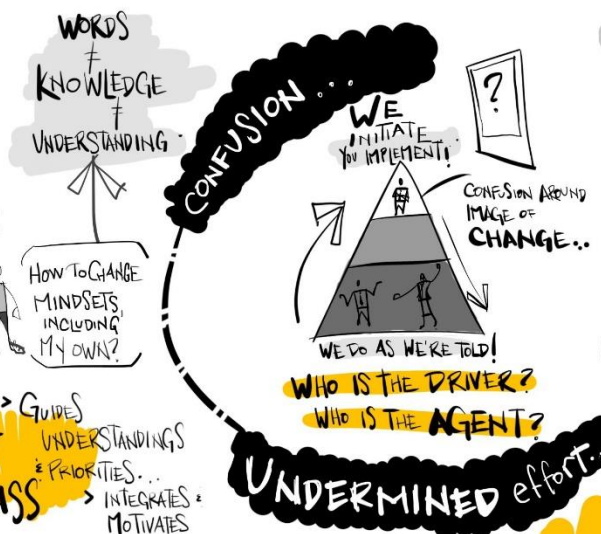 WORDS
≠
KNOWLEDGE
≠
UNDERSTANDING
HOW TO CHANGE
MINDSETS,
INCLUDING
MY OWN?
> GUIDES
UNDERSTANDINGS
& PRIORITIES...
> INTEGRATES &
MOTIVATES
CONFUSION...
WE
INITIATE...
YOU IMPLEMENT!
?
CONFUSION AROUND
IMAGE OF
CHANGE...
WE DO AS WE'RE TOLD!
WHO IS THE DRIVER?
WHO IS THE AGENT?
UNDERMINED effort...